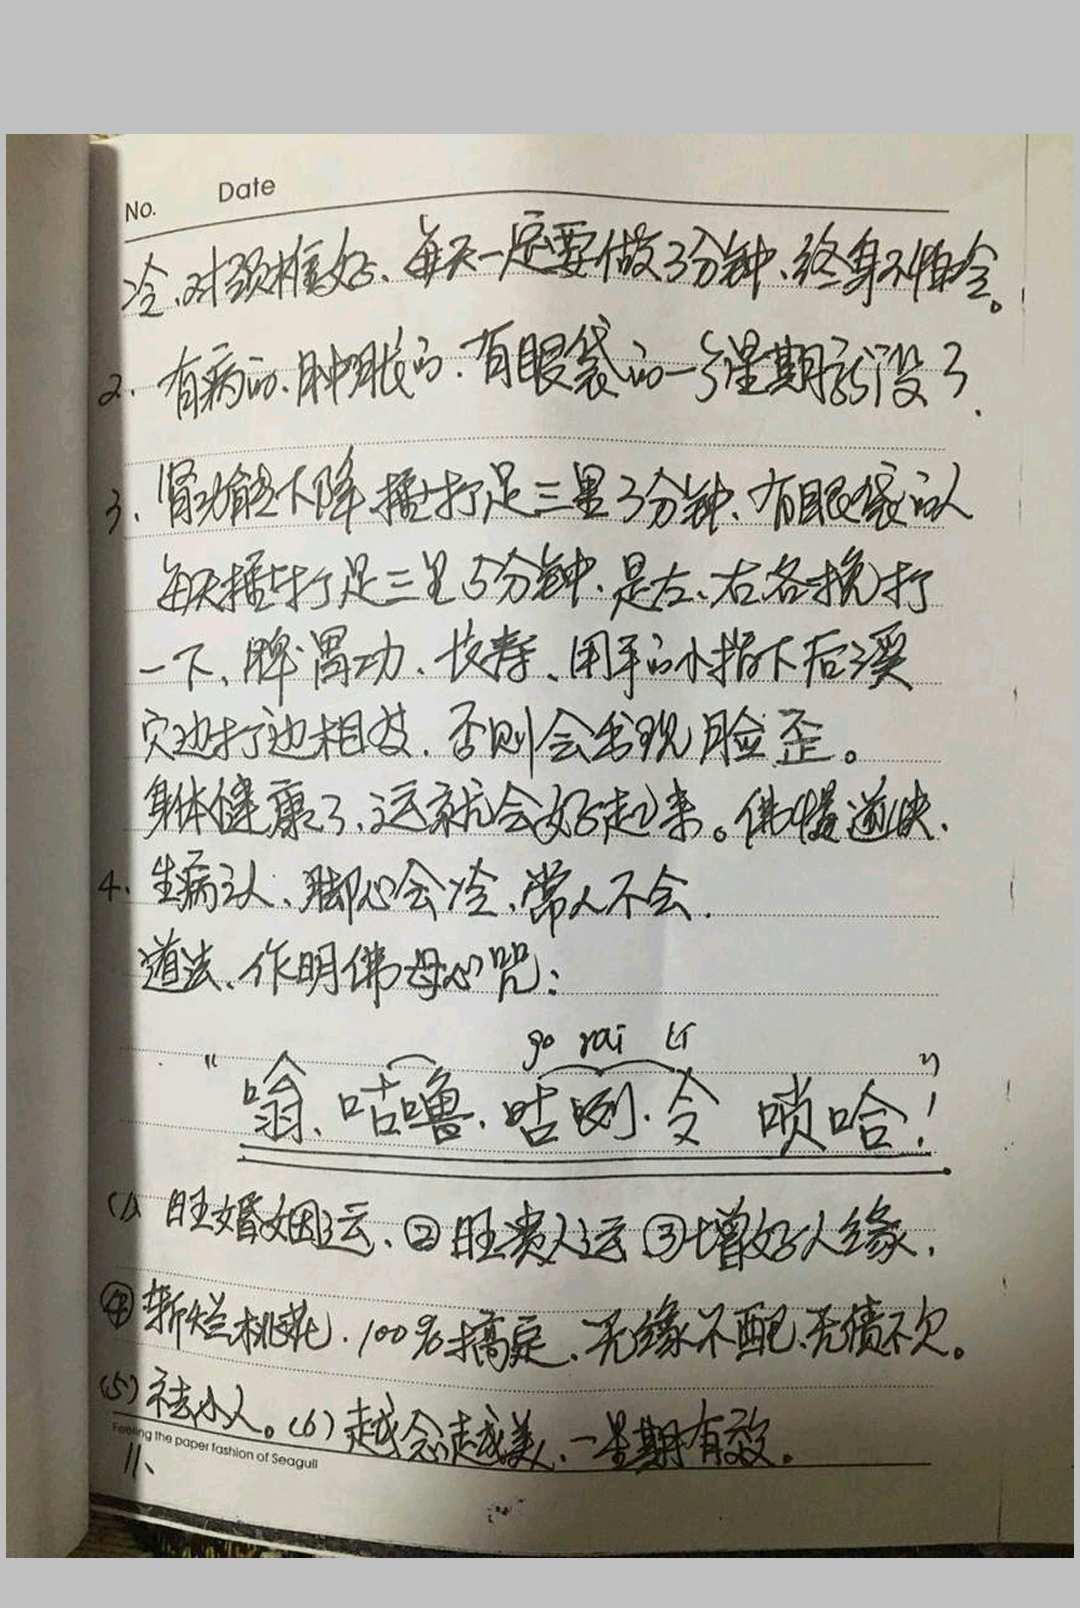 No. Date
冷、对颈椎好、每天一定要做3分钟、终身不怕冷。
2. 有病的、肿胀的、有眼袋的一个星期就没了.
3. 肾功能下降、捶打足三里3分钟、有眼袋的人
每天捶打足三里5分钟、是左、右各换打
一下、脾胃功、长寿、用手的小指下后溪
穴边打边相敲.否则会出现脸歪。
身体健康了、运就会好起来。佛慢道快.
4. 生病之人、脚心会冷、常人不会.
道法、作明佛母心咒:
go rai Li
"嗡、咕噜、咕咧、令 唢哈!"
(1)、旺婚姻运、②旺贵人运 ③增好人缘.
④斩烂桃花.100%搞定、无缘不配、无债不欠。
(5)祛小人。(6)越念越美、一星期有效。
Feeling the paper fashion of Seagull
11、